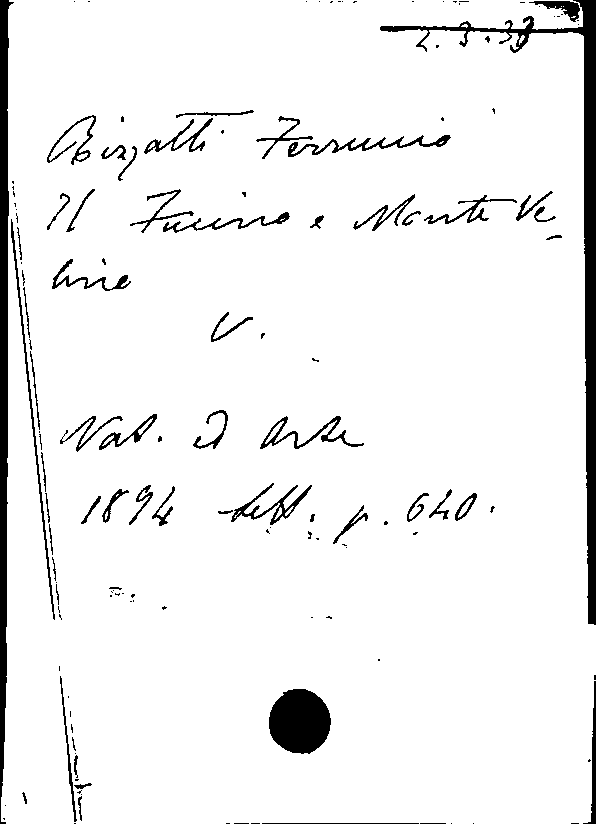 2.3.38
Bizzatti Ferruccio
Il Fucino e Monte Ve-
lino
V.
Nat. ed Arte
1894 Sett. p. 640.